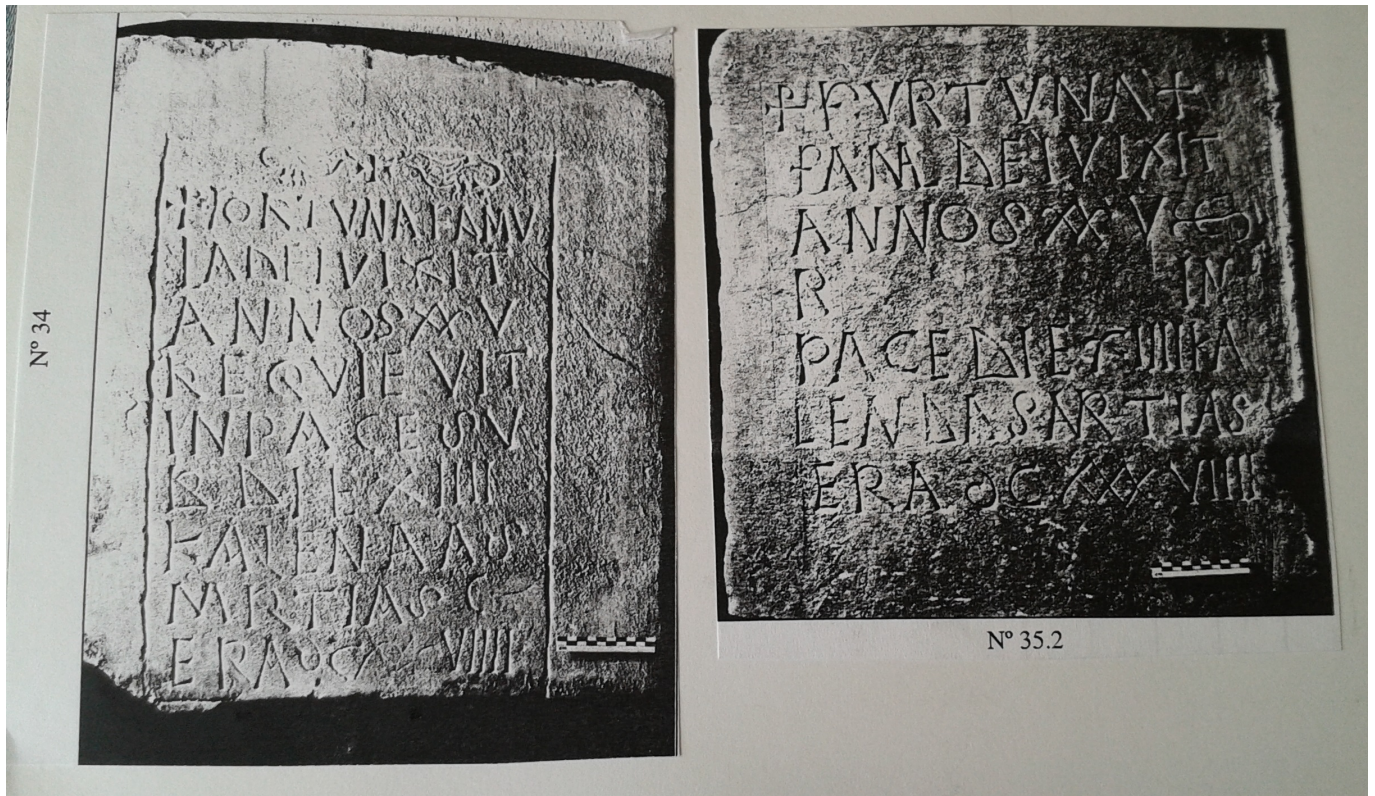 Nº 34
+ FORTUNA FAMU
LA DEI VIXIT
ANNOS XXV
REQVIEVIT
IN PACE SV
B DIE XIIII
KALENDAS
MRTIAS
ERA VIIII
+ FVRTVNA +
FAM DEI VIXIT
ANNOS XXV
R IN
PACE DIE IIII KA
LENDAS MRTIAS
ERA XXXVIIII
Nº 35.2